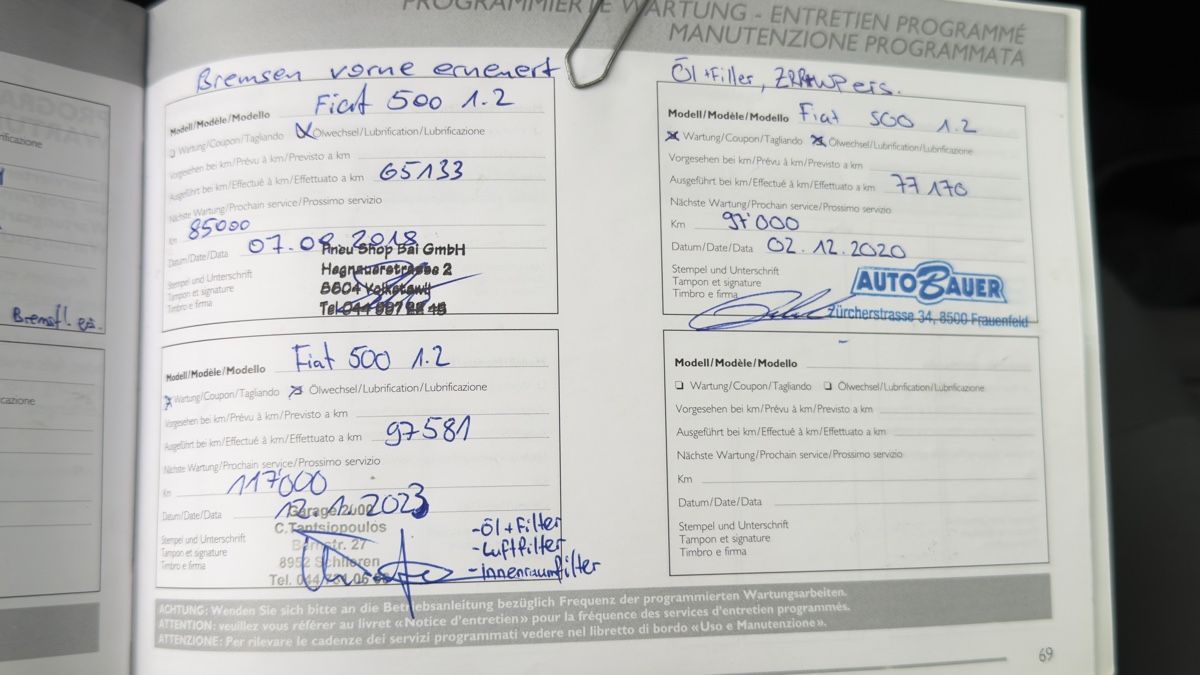 PROGRAMMIERTE WARTUNG - ENTRETIEN PROGRAMMÉ
MANUTENZIONE PROGRAMMATA
Bremsen vorne erneuert
Fiat 500 1.2
Modell/Modèle/Modello
Wartung/Coupon/Tagliando Ölwechsel/Lubrification/Lubrificazione
Vorgesehen bei km/Prévu à km/Previsto a km
Ausgeführt bei km/Effectué à km/Effettuato a km 65133
Nächste Wartung/Prochain service/Prossimo servizio
Km 85000
Datum/Date/Data 07.08.2018
Stempel und Unterschrift
Tampon et signature
Timbro e firma
Pneu Shop Bai GmbH
Hegnauerstrasse 2
8604 Volketswil
Tel 044
Bremsfl.
Fiat 500 1.2
Modell/Modèle/Modello
Wartung/Coupon/Tagliando Ölwechsel/Lubrification/Lubrificazione
Vorgesehen bei km/Prévu à km/Previsto a km
Ausgeführt bei km/Effectué à km/Effettuato a km 97581
Nächste Wartung/Prochain service/Prossimo servizio
Km 117000
Datum/Date/Data 12.1.2023
Stempel und Unterschrift
Tampon et signature
Timbro e firma
Garage 2000
C.Tantsiopoulos
27
8952 Schlieren
Tel. 044
-Öl+Filter
-Luftfilter
-Innenraumfilter
Öl+Filter,
Modell/Modèle/Modello Fiat 500 1.2
Wartung/Coupon/Tagliando Ölwechsel/Lubrification/Lubrificazione
Vorgesehen bei km/Prévu à km/Previsto a km
Ausgeführt bei km/Effectué à km/Effettuato a km 77170
Nächste Wartung/Prochain service/Prossimo servizio
Km 97'000
Datum/Date/Data 02.12.2020
Stempel und Unterschrift
Tampon et signature
Timbro e firma
AUTO BAUER
Zürcherstrasse 34, 8500 Frauenfeld
Modell/Modèle/Modello
Wartung/Coupon/Tagliando Ölwechsel/Lubrification/Lubrificazione
Vorgesehen bei km/Prévu à km/Previsto a km
Ausgeführt bei km/Effectué à km/Effettuato a km
Nächste Wartung/Prochain service/Prossimo servizio
Km
Datum/Date/Data
Stempel und Unterschrift
Tampon et signature
Timbro e firma
ACHTUNG: Wenden Sie sich bitte an die Betriebsanleitung bezüglich Frequenz der programmierten Wartungsarbeiten.
ATTENTION: veuillez vous référer au livret «Notice d'entretien» pour la fréquence des services d'entretien programmés.
ATTENZIONE: Per rilevare le cadenze dei servizi programmati vedere nel libretto di bordo «Uso e Manutenzione».
69